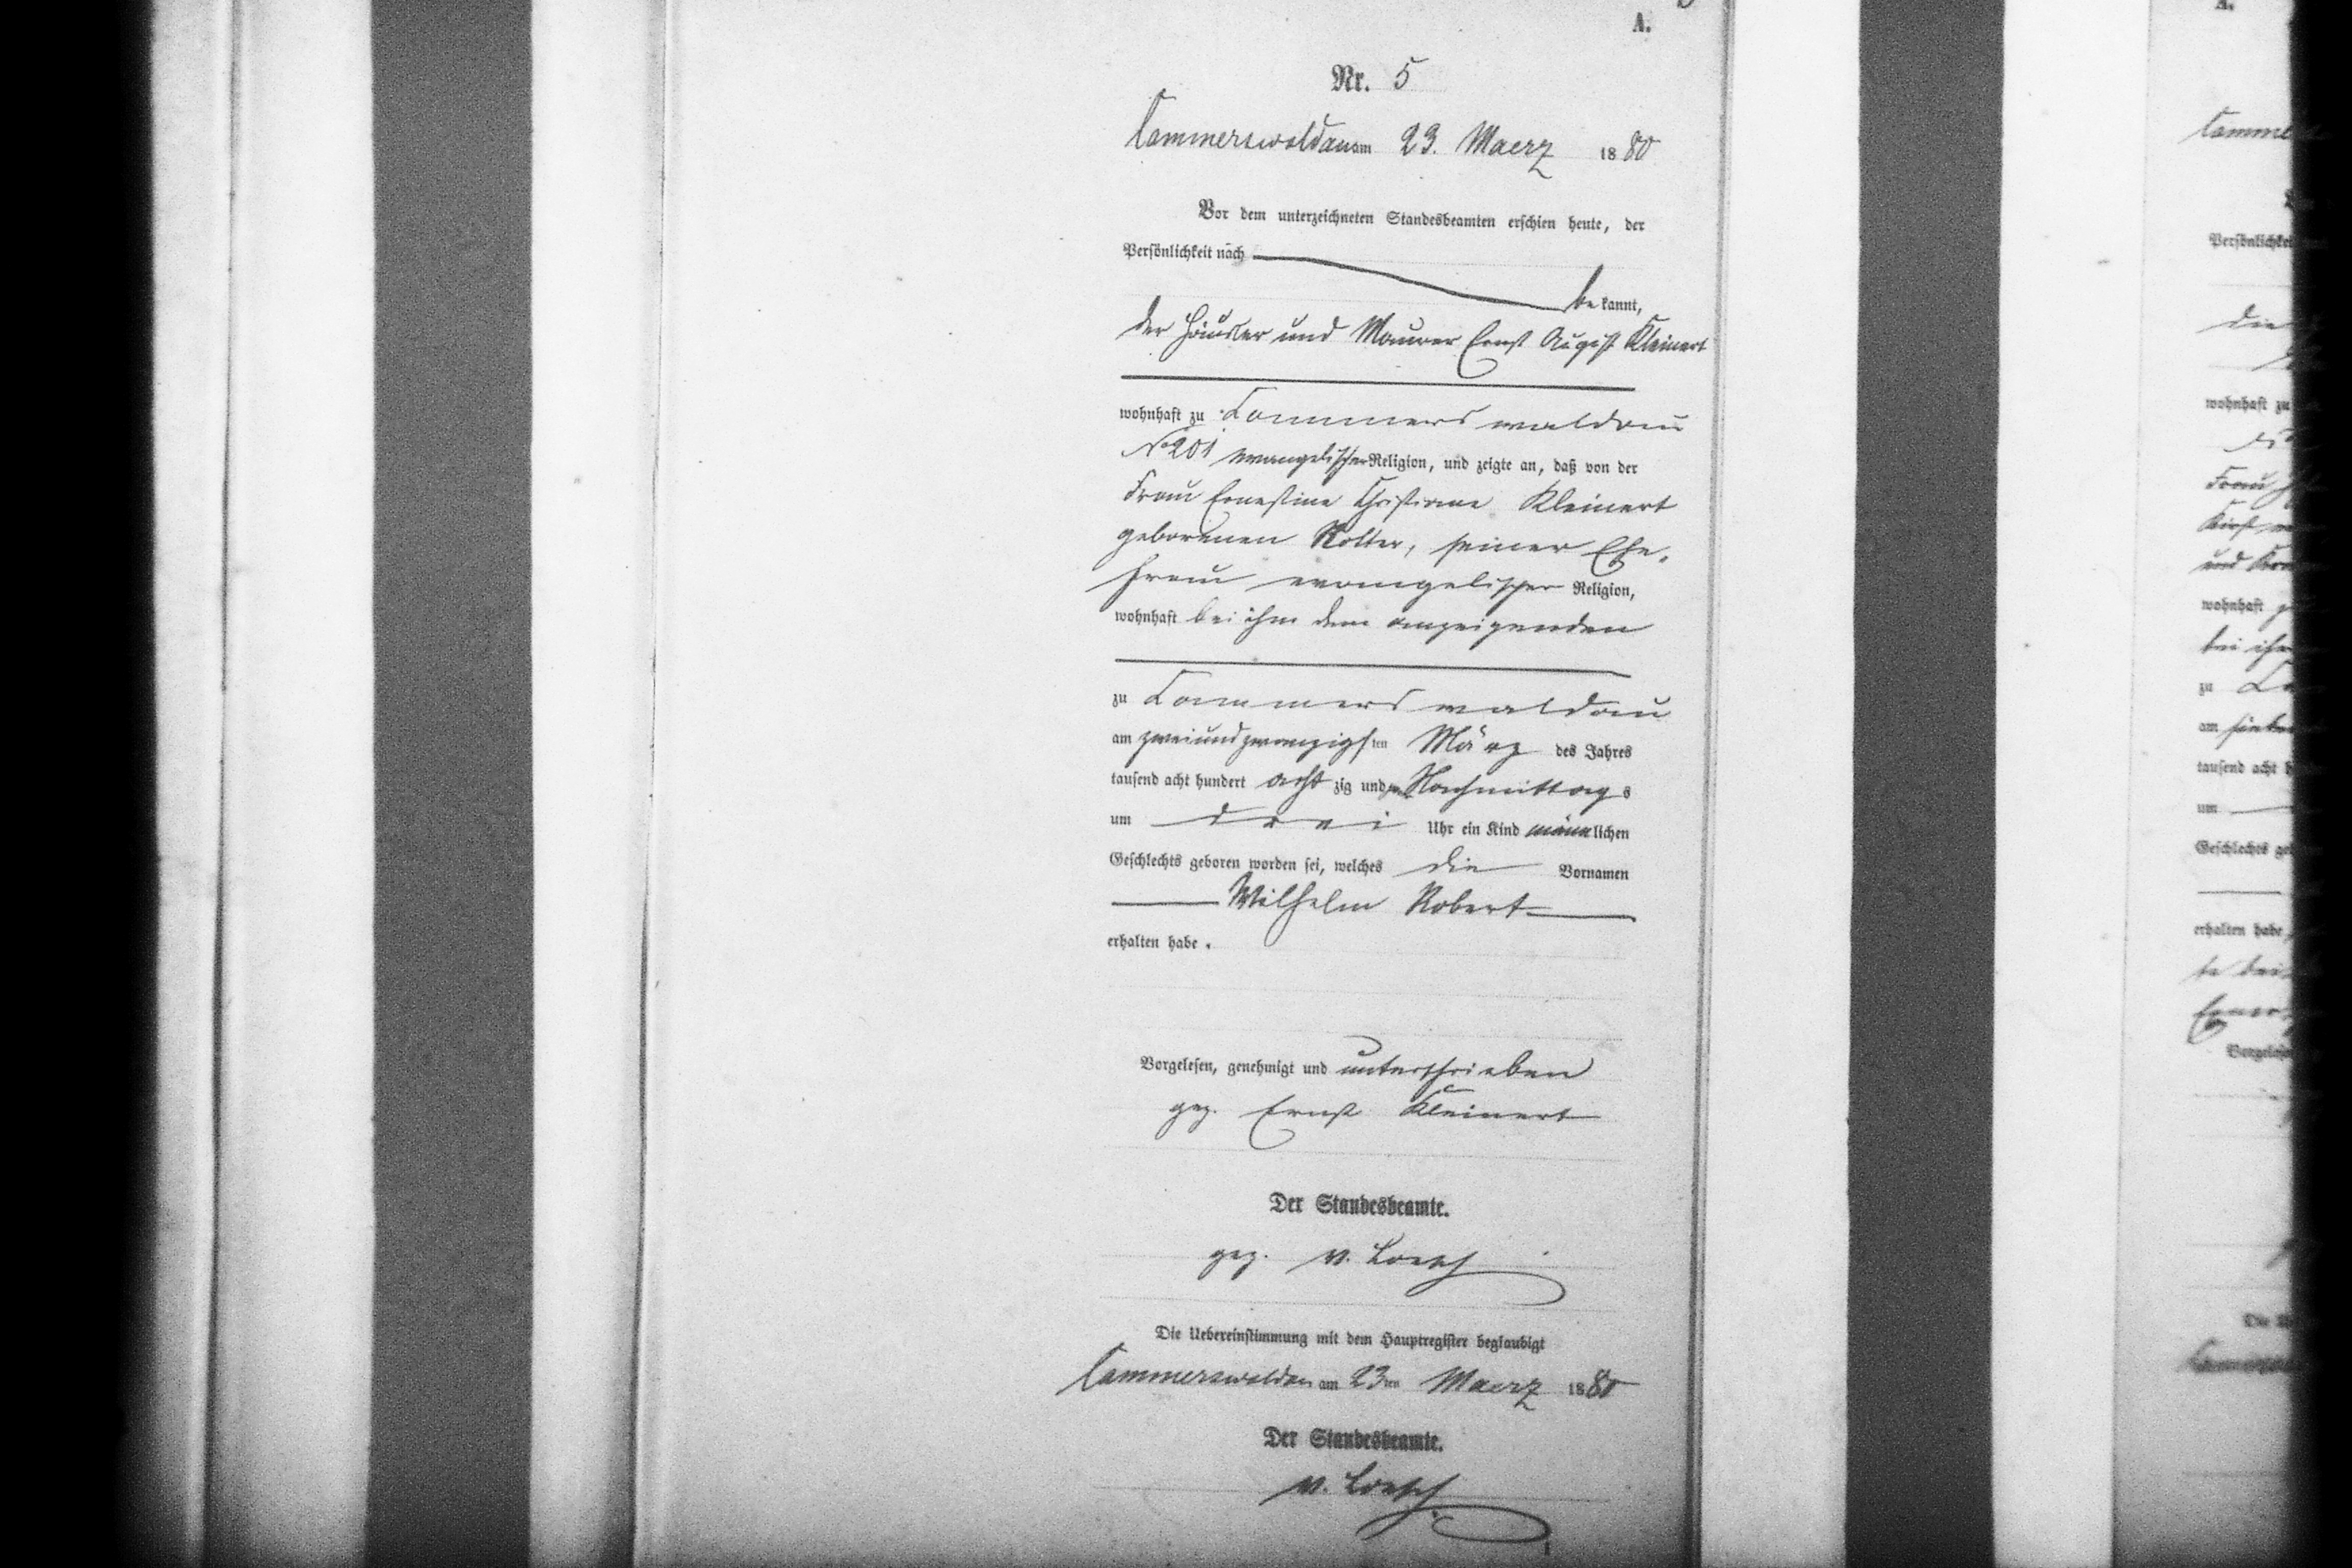 A.
Nr. 5
Cammerswaldau am 23. Maerz 1880
Vor dem unterzeichneten Standesbeamten erschien heute, der
Persönlichkeit nach
bekannt,
der Häusler und Maurer Ernst August Kleinert
wohnhaft zu Cammerswaldau
No 201 evangelischer Religion, und zeigte an, daß von der
Frau Ernestine Christiane Kleinert
geborenen Nolter, seiner Ehe-
frau evangelischer Religion,
wohnhaft bei ihm dem anzeigenden
zu Cammerswaldau
am zweiundzwanzigsten März des Jahres
tausend acht hundert achtzig und Nachmittags
um drei Uhr ein Kind männlichen
Geschlechts geboren worden sei, welches die Vornamen
Wilhelm Robert
erhalten habe.
Vorgelesen, genehmigt und unterschrieben
gez. Ernst Kleinert
Der Standesbeamte.
gez. v. Loesch
Die Uebereinstimmung mit dem Hauptregister beglaubigt
Cammerswaldau am 23ten Maerz 1880
Der Standesbeamte.
v. Loesch
A.
Comme
Persönlichkei
die
wohnhaft zu
Frau
und
wohnhaft
bei ihm
zu
am
tausend acht h
um
Geschlechts ge
erhalten habe
Vorgelese
Die U